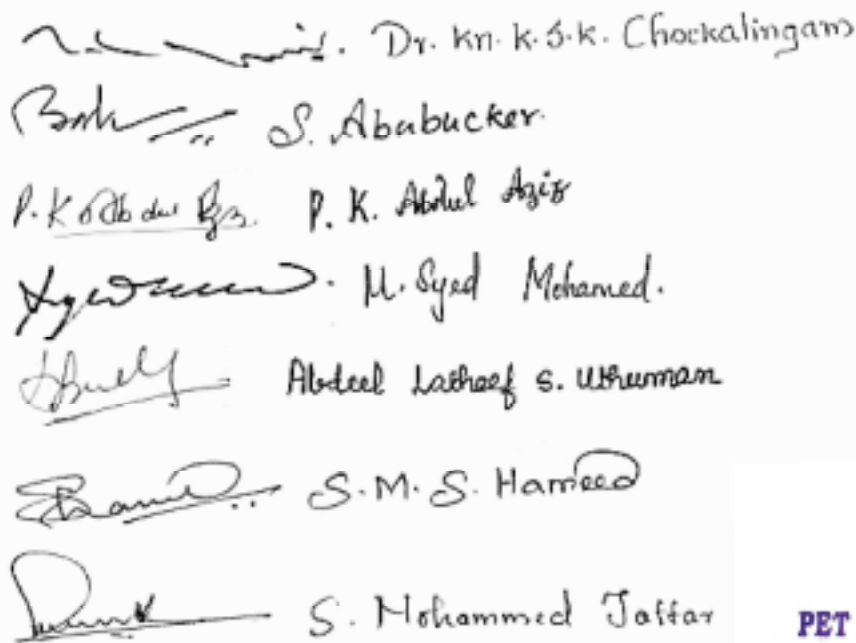 Dr. Kn. K. S. K. Chockalingam
S. Ababucker.
P. K. Abdul Aziz P. K. Abdul Aziz
M. Syed Mohamed.
Abdeel Latheef S. Uthuman
S. M. S. Hameed
S. Mohammed Jaffar
PET